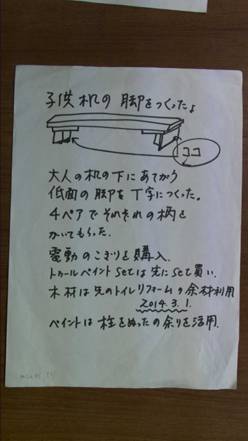 子供机の脚をつくったよ
ココ
大人の机の下にあてがう
低面の脚を丁字につくった。
4ペアでそれぞれの柄を
かいてもらった。
電動のこぎりを購入
トゥールペイントsetは先にset買い。
木材は先のトイレリフォームの余材利用
2014.3.1.
ペイントは柱をぬったの余りを活用